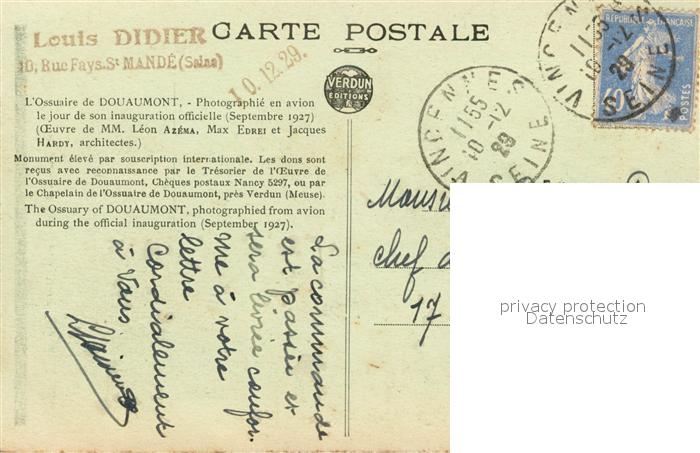 Louis DIDIER
10, Rue Fays. St MANDÉ (Seine)
10.12.29.
CARTE POSTALE
VERDUN
ÉDITIONS
VINCENNES
11 55
10 -12
29
SEINE
VINCENNES
11 55
10 -12
29
SEINE
RÉPUBLIQUE FRANÇAISE
40
POSTES
L'Ossuaire de DOUAUMONT, - Photographié en avion
le jour de son inauguration officielle (Septembre 1927)
(Œuvre de MM. Léon AZÉMA, Max EDREI et Jacques
HARDY, architectes.)
Monument élevé par souscription internationale. Les dons sont
reçus avec reconnaissance par le Trésorier de l'Œuvre de
l'Ossuaire de Douaumont, Chèques postaux Nancy 5297, ou par
le Chapelain de l'Ossuaire de Douaumont, près Verdun (Meuse).
The Ossuary of DOUAUMONT, photographied from avion
during the official inauguration (September 1927).
La commande
est passée et
sera livrée confor.
me à votre
lettre
Cordialement
à Vous
Monsie
chef d
17
privacy protection
Datenschutz